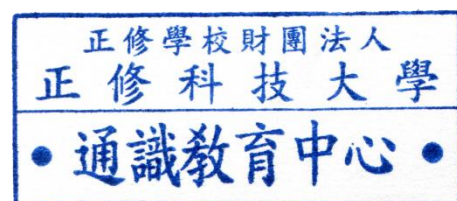 正修學校財團法人
正修科技大學
•通識教育中心•